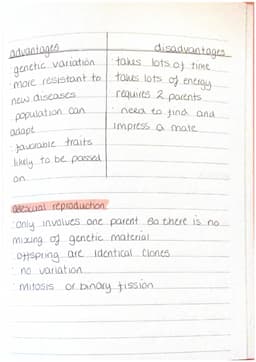 advantages disadvantages
· genetic variation · takes lots of time
· more resistant to · takes lots of energy
new diseases · requires 2 parents
· population can · need to find and
adapt impress a mate
· favorable traits
likely to be passed
on
asexual reproduction
· only involves one parent so there is no
mixing of genetic material
· offspring are identical clones
· no variation
· mitosis or binary fission